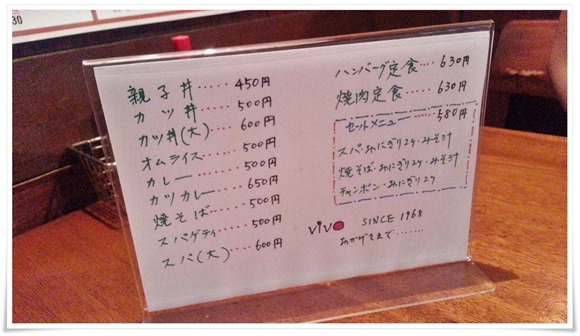 30
親子丼……450円
カツ丼……500円
カツ丼(大)……600円
オムライス……500円
カレー……500円
カツカレー……650円
焼そば……500円
スパゲティ……500円
スパ(大)……600円
ハンバーグ定食……630円
焼肉定食……630円
セールメニュー……580円
スパ・おにぎり2ケ・みそ汁
焼そば・おにぎり2ケ・みそ汁
チャンポン・おにぎり2ケ
vivo SINCE 1968
おかげさまで………